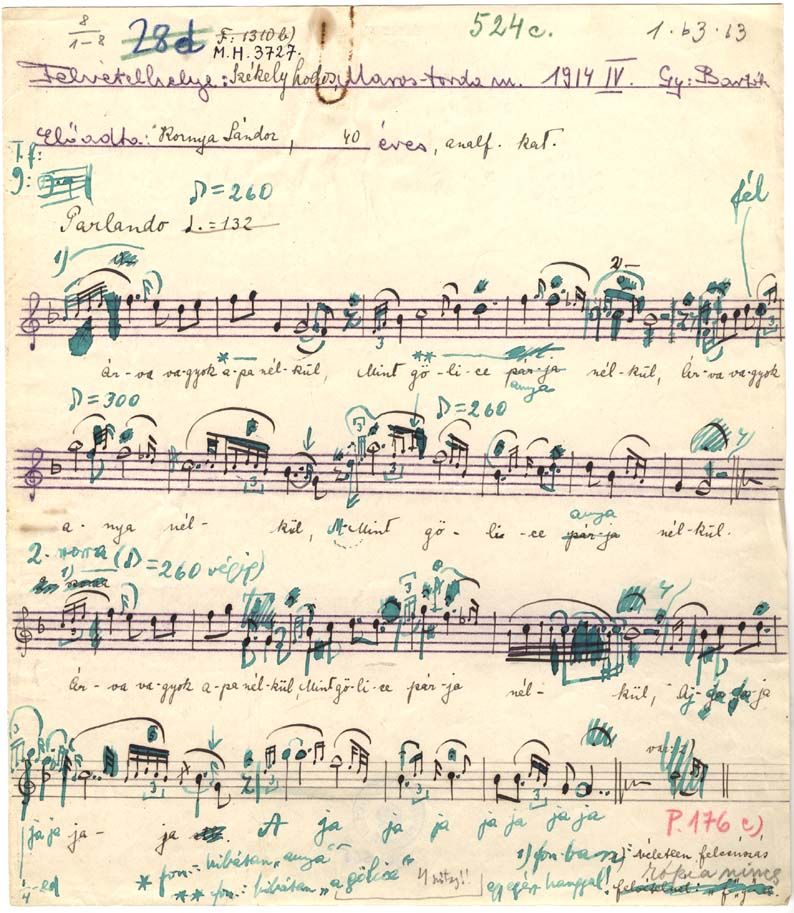 8 524c. 1.b3.b3
1-8 28d F: 1310b)
M.H. 3727.
Felvétel helye: Székelyhodos, Maros-torda m. 1914 IV. Gy: Bartók
Előadta: Kornya Sándor, 40 éves, analf. kat.
T. f:
g: ♪=260 fél
Parlando ♩.=132
1) 2
Ár-va va-gyok a-pa nél-kül, Mint gö-li-ce pár-ja nél-kül, Ár-va va-gyok
* ** anya
♪=300 ♪=260
anya
a-nya nél-kül, Mint gö-li-ce pár-ja nél-kül.
2. versszak (♪=260 végig)
1)
Ár-va va-gyok a-pa nél-kül, Mint gö-li-ce pár-ja nél-kül, Aj-ja ja-ja
var:
ja ja ja- ja A ja ja ja ja ja ja ja
P. 176 c)
* fon: hibátan „anya”
** fon: hibátan „a gölice”
1) fon-ban véletlen felcsúszás
egész hanggal!
kópia nincs